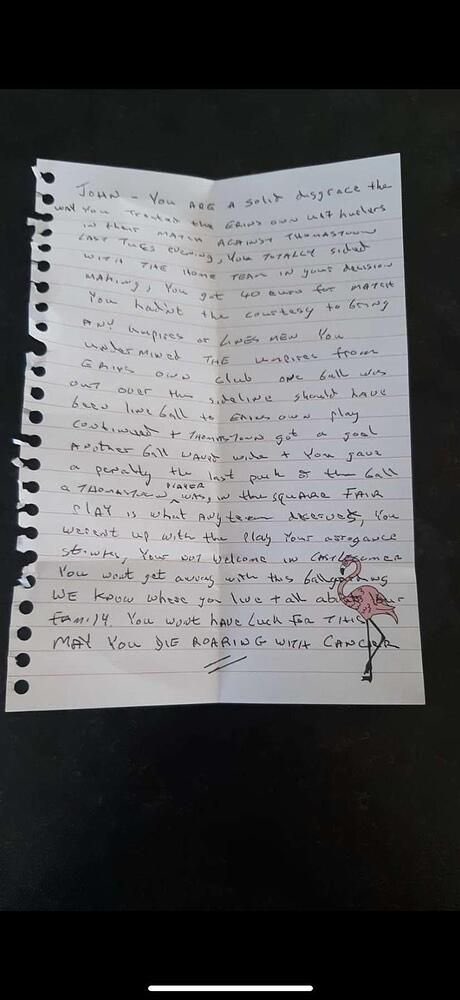 JOHN - YOU ARE A solid disgrace the
way You Treated the ERINS OWN U17 hurlers
in their MATCH AGAINST THOMASTOWN
LAST TUES evening, YOU TOTALLY sided
WITH THE HOME TEAM IN your decision
MAKING, YOU got 40 euro for MATCH
You hadn't the courtesy to bring
ANY umpires or LINES MEN You
undermined THE umpires from
ERINS OWN club one ball was
out over the sideline should have
been line ball to ERINS OWN play
continued + THOMASTOWN got a goal
Another ball went wide + You gave
a penalty the last puck of the ball
a THOMASTOWN PLAYER was in the square FAIR
PLAY is what ANY team deserves, You
weren't up with the Play Your arrogance
stinks, Your not welcome in CASTLECOMER
You wont get away with this
WE KNOW where you live + all about your
FAMILY. You wont HAVE Luck FOR THIS
MAY YOU DIE ROARING WITH CANCER